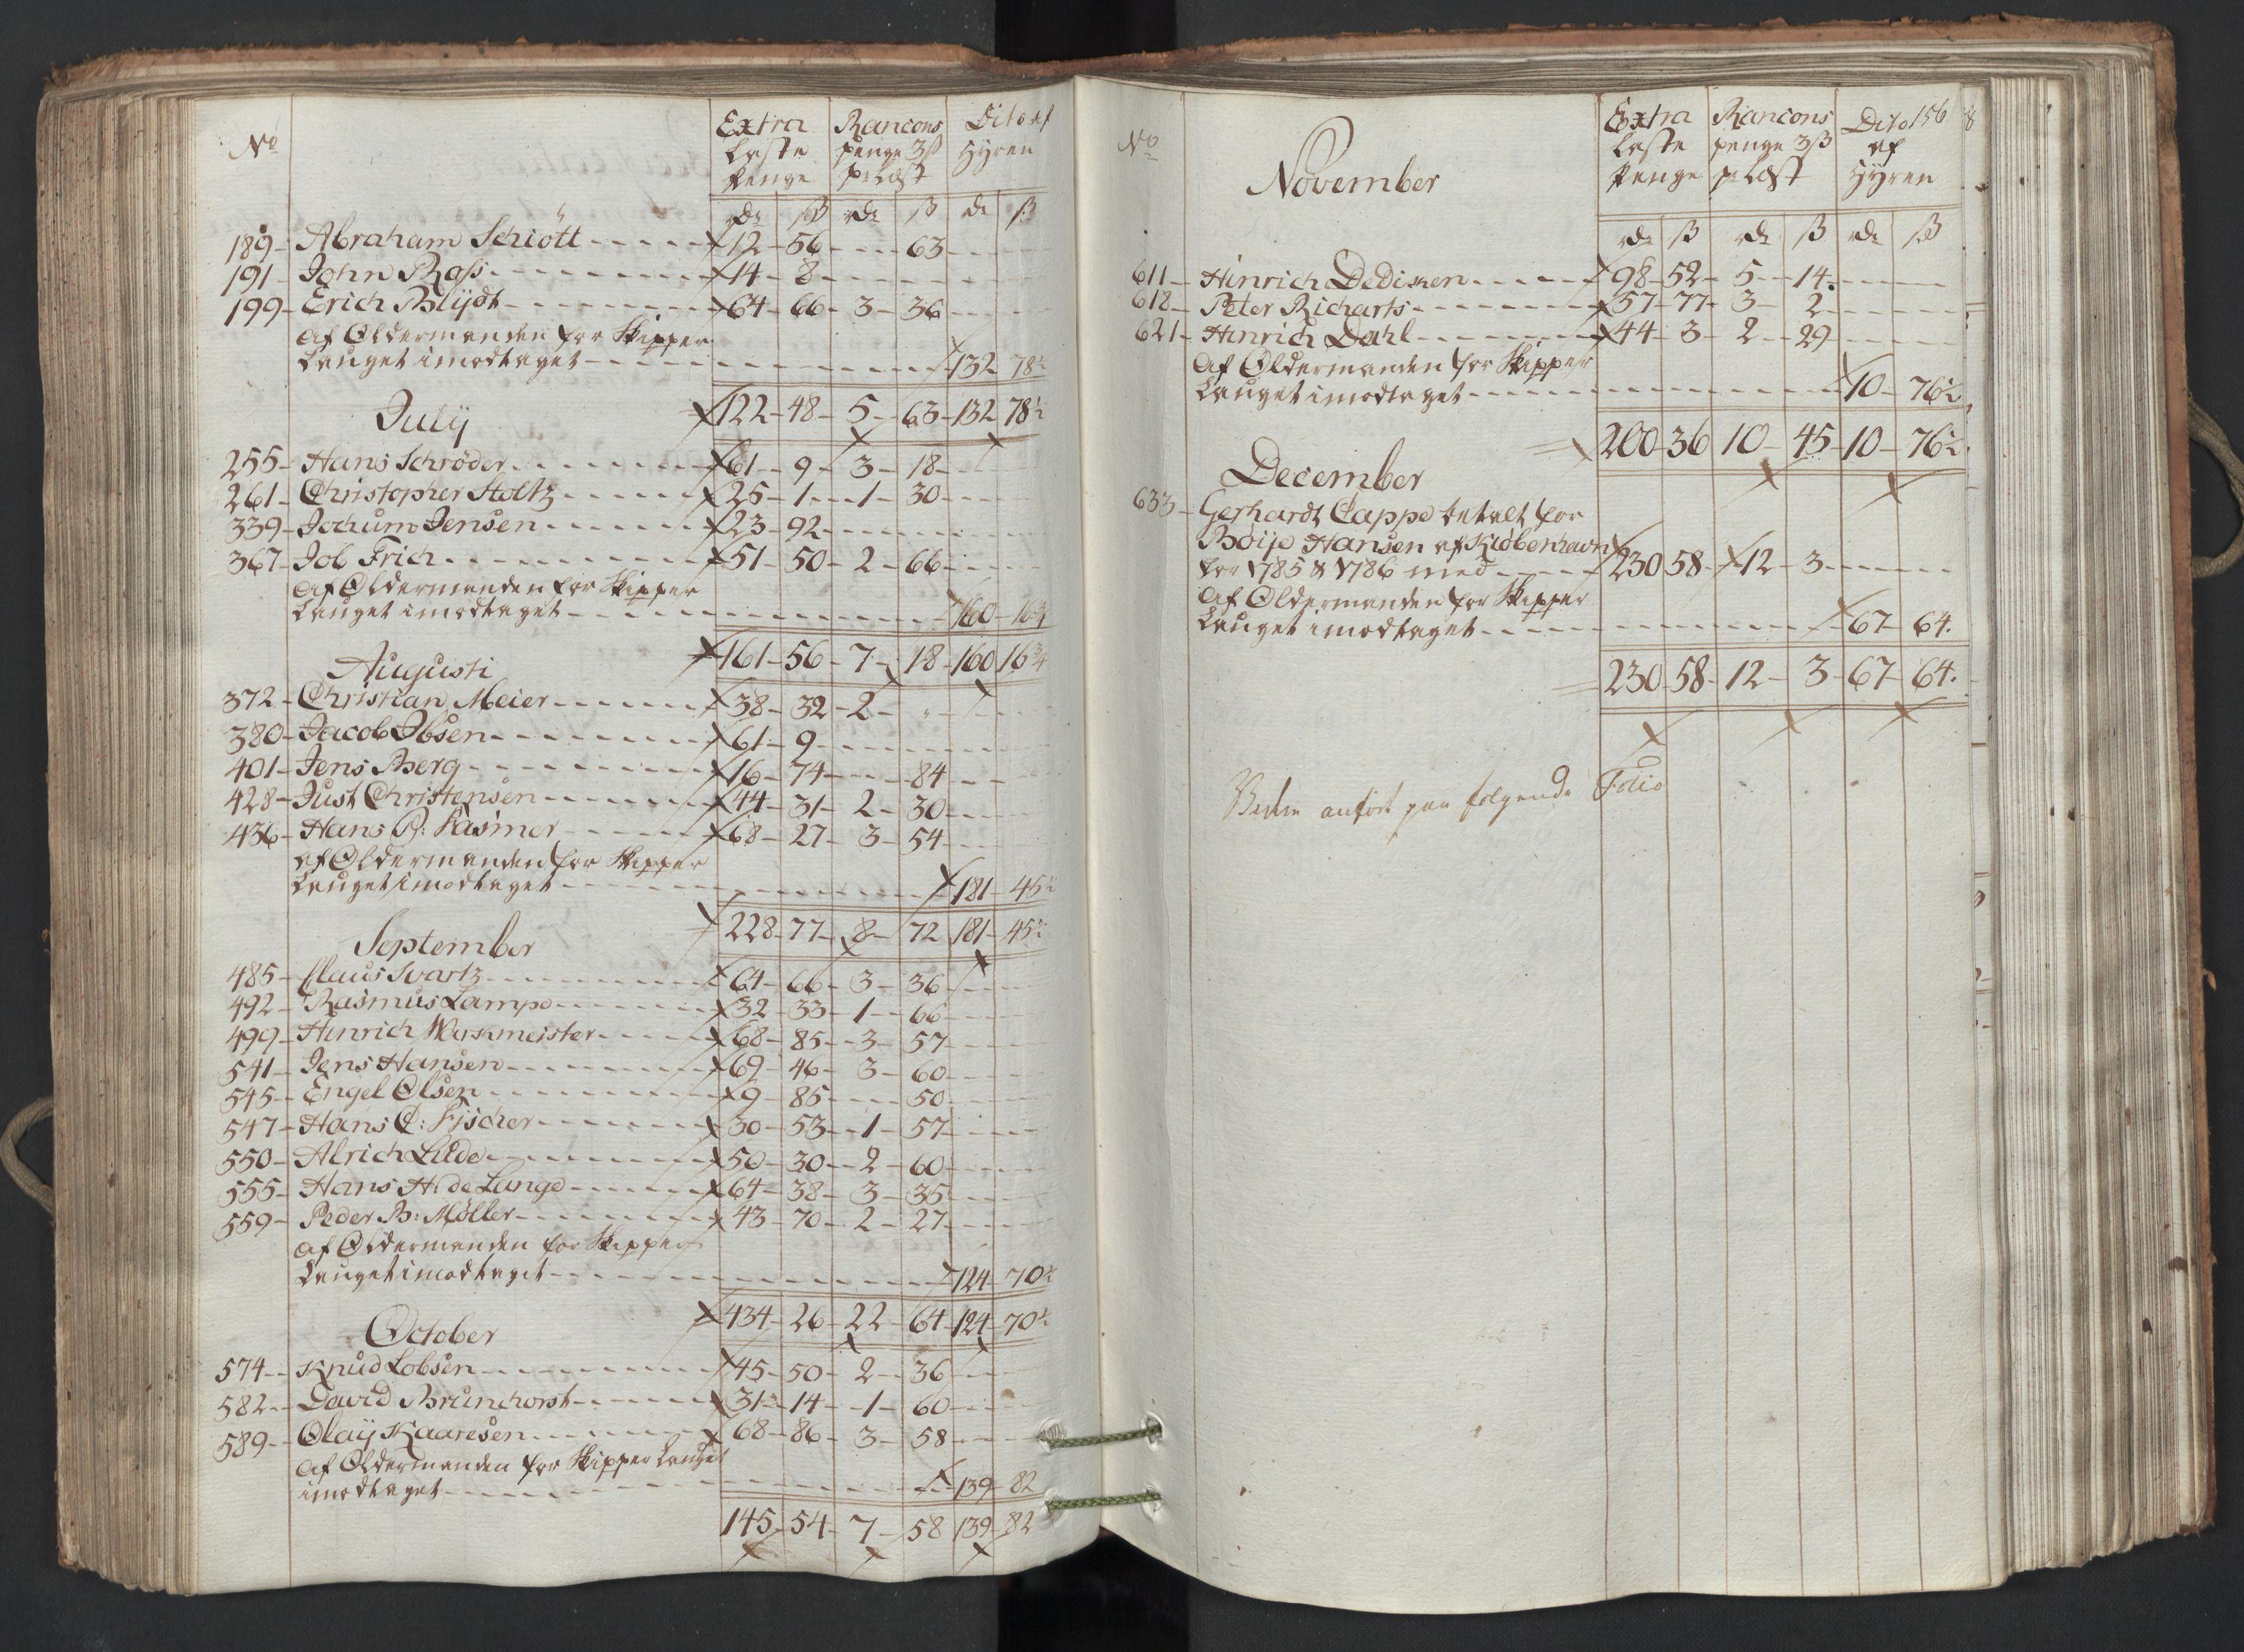 No
Extra Rancons Dito af
Laste penge 3ß Hyren
Penge pr Læst
rdr ß rdr ß rdr ß
189 - Abraham Schiött - 12 - 56 - 63
191 - John Ross - 14 - 8
199 - Erich Blijdt - 64 - 66 - 3 - 36
af Oldermanden for Skipper
Lauget imodtaget - 132 78½
122 - 48 - 5 - 63 - 132 78½
Julij
255 - Hans Schrøder - 61 - 9 - 3 - 18
261 - Christopher Stoltz - 25 - 1 - 1 - 30
339 - Jochum Jensen - 23 - 92
367 - Job Frich - 51 - 50 - 2 - 66
af Oldermanden for Skipper
Lauget imodtaget - 160 - 16¾
161 - 56 - 7 - 18 - 160 16¾
Augusti
372 - Christian Meier - 38 - 32 - 2
380 - Jacob Ibsen - 61 - 9
401 - Jens Berg - 16 - 74 - 84
428 - Just Christensen - 44 - 31 - 2 - 30
436 - Hans P: Fasmer - 68 - 27 - 3 - 54
af Oldermanden for Skipper
Lauget imodtaget - 181 - 45½
228 - 77 - 8 - 72 181 - 45½
September
485 - Claus Svartz - 64 - 66 - 3 - 36
492 - Rasmus Lampe - 32 - 33 - 1 - 66
499 - Hinrich Waskmeister - 68 - 85 - 3 - 57
541 - Jens Hansen - 69 - 46 - 3 - 60
545 - Engel Olsen - 9 - 85 - 50
547 - Hans C: Fischer - 30 - 53 - 1 - 57
550 - Alrich Lüde - 50 - 30 - 2 - 60
555 - Hans H: de Lange - 64 - 38 - 3 - 35
559 - Peder B: Møller - 43 - 70 - 2 - 27
af Oldermanden for Skipper
Lauget imodtaget - 124 - 70½
434 - 26 - 22 - 64 - 124 - 70½
October
574 - Knud Lobsen - 45 - 50 - 2 - 36
582 - David Brunchorst - 31 - 14 - 1 - 60
589 - Olaij Kaaresen - 68 - 86 - 3 - 58
af Oldermanden for Skipper Lauget
imodtaget - 139 - 82
145 - 54 - 7 - 58 139 - 82
No
November
Extra Rancons Dito 156
Laste penge 3ß af
Penge pr Læst Hyren
rdr ß rdr ß rdr ß
611 - Hinrich Dedisken - 98 - 52 - 5 - 14
618 - Peter Richarts - 57 - 77 - 3 - 2
621 - Hinrich Dahl - 44 - 3 - 2 - 29
af Oldermanden for Skipper
Lauget imodtaget - 10 - 76½
200 - 36 10 - 45 - 10 - 76½
December
633 - Gerhardt Cappe betalt for
Böije Hansen af Kiøbenhavn
for 1785 & 1786 med - 230 58 - 12 - 3
af Oldermanden for Skipper
Lauget imodtaget - 67 - 64
230 - 58 - 12 - 3 - 67 - 64
anfört paa følgende Folio